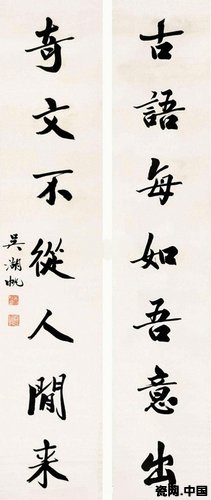 古語每如吾意出
奇文不從人間来
吳湖帆
瓷网.中国